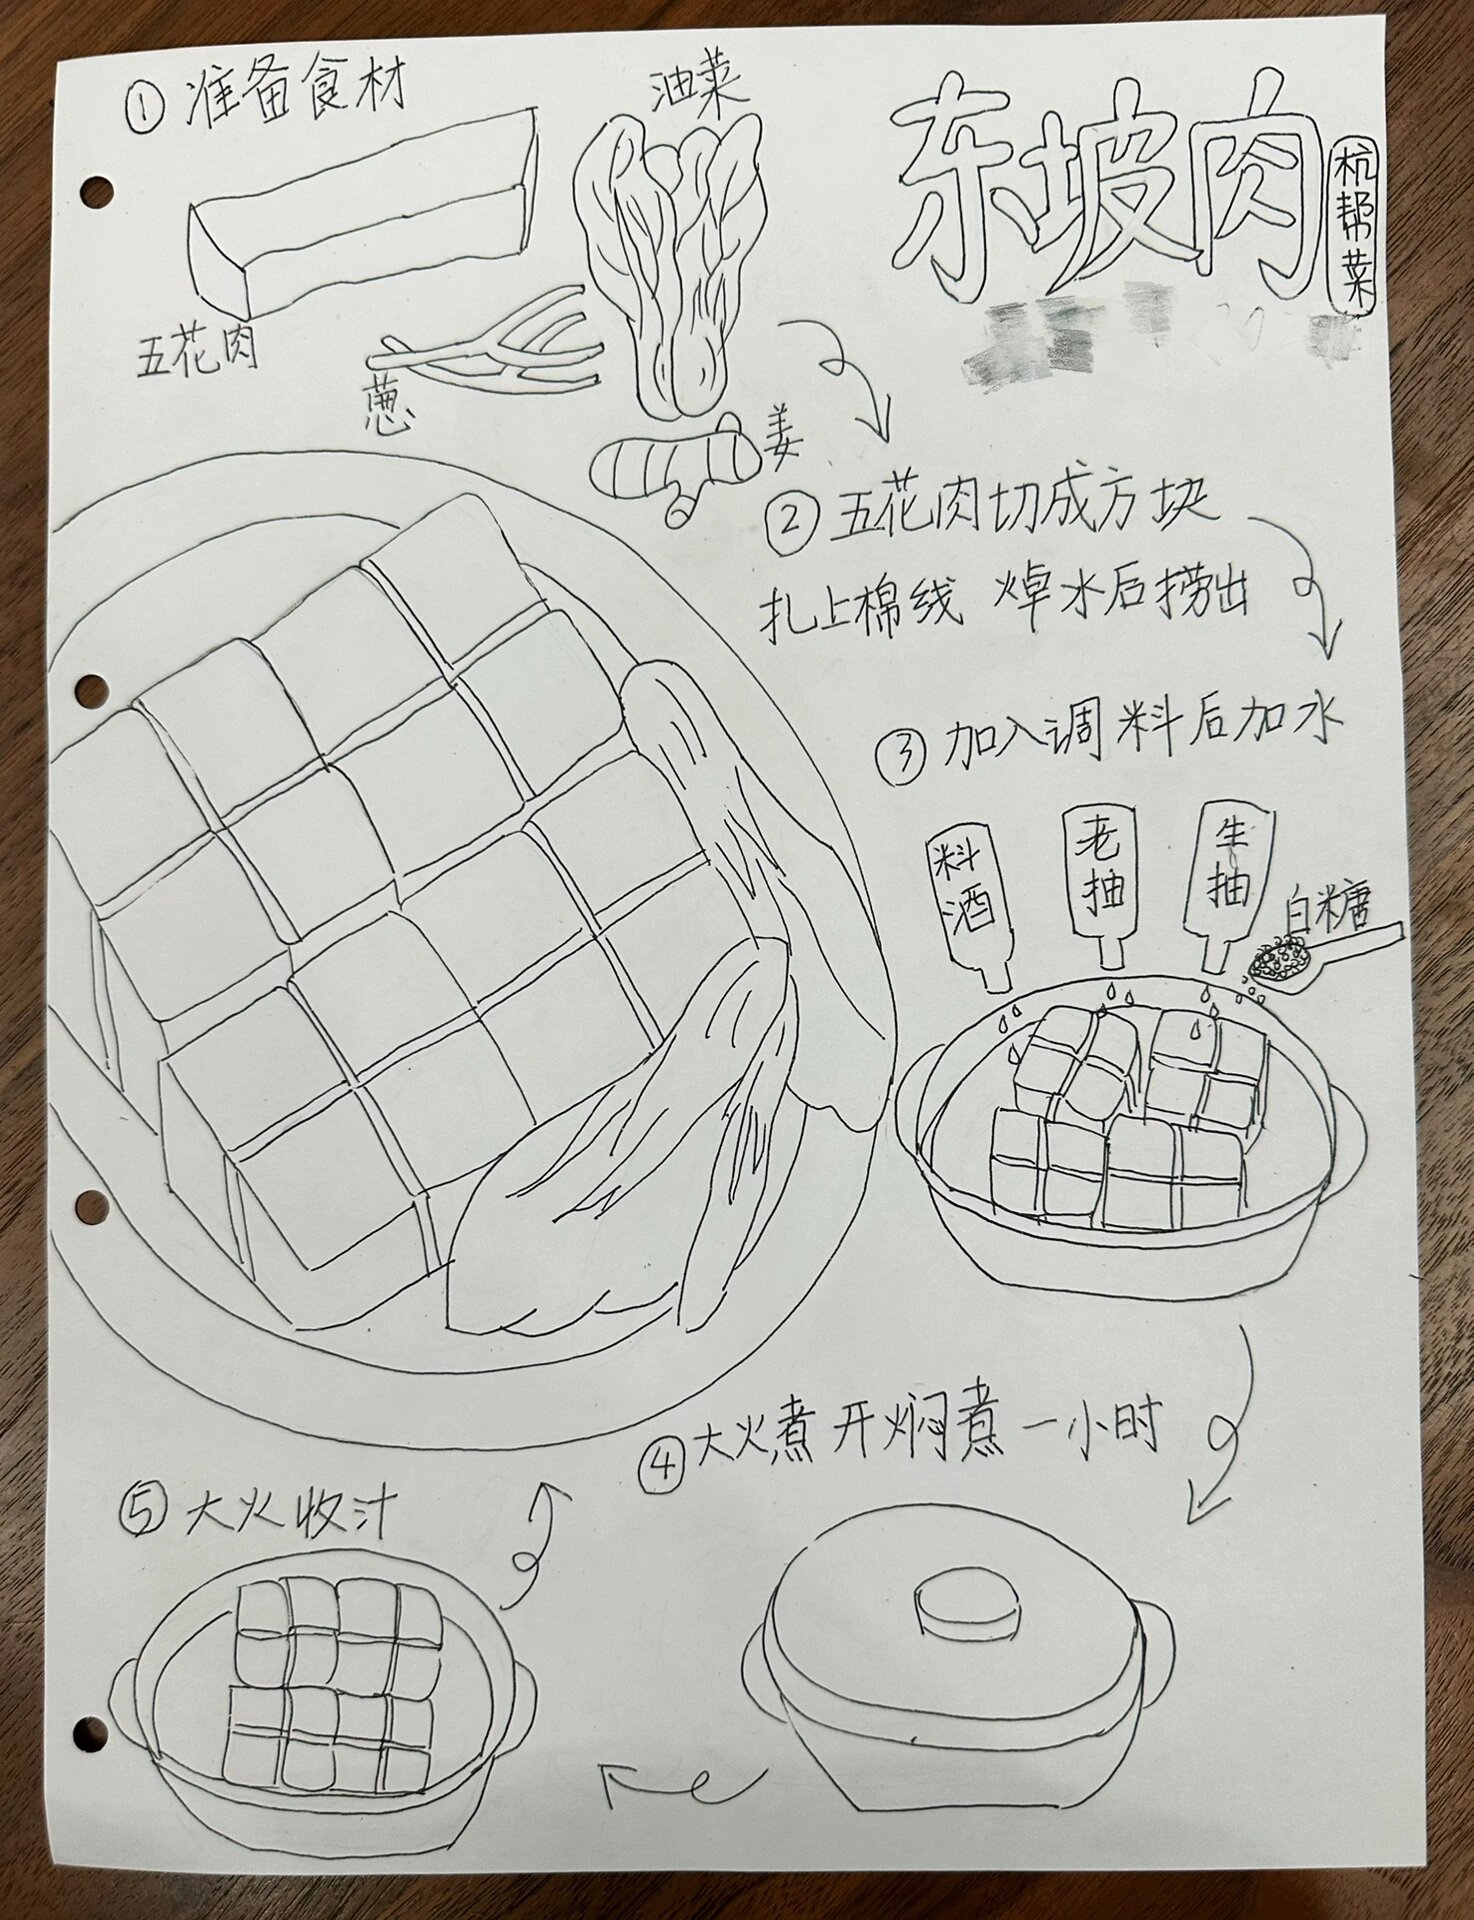 东坡肉
杭帮菜
① 准备食材
油菜
五花肉
葱
姜
② 五花肉切成方块
扎上棉线 焯水后捞出
③ 加入调料后加水
料酒
老抽
生抽
白糖
④ 大火煮开焖煮一小时
⑤ 大火收汁